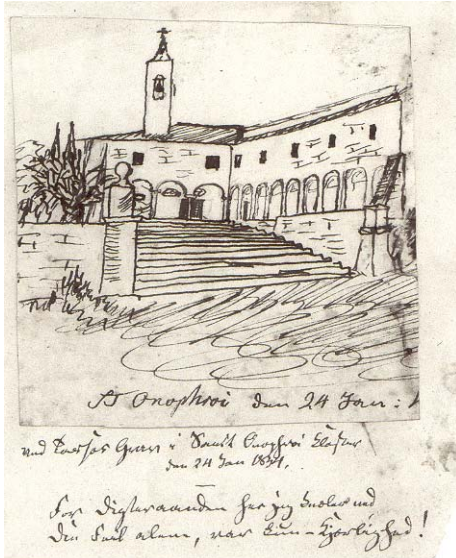 St Onophroi den 24 Jan:
ved Tassos Grav i Sanct Onophroi Kloster
den 24 Jan 1841.
For Digteraanden her jeg knæler ned
Din Feil alene, var kun – Kjærlighed!